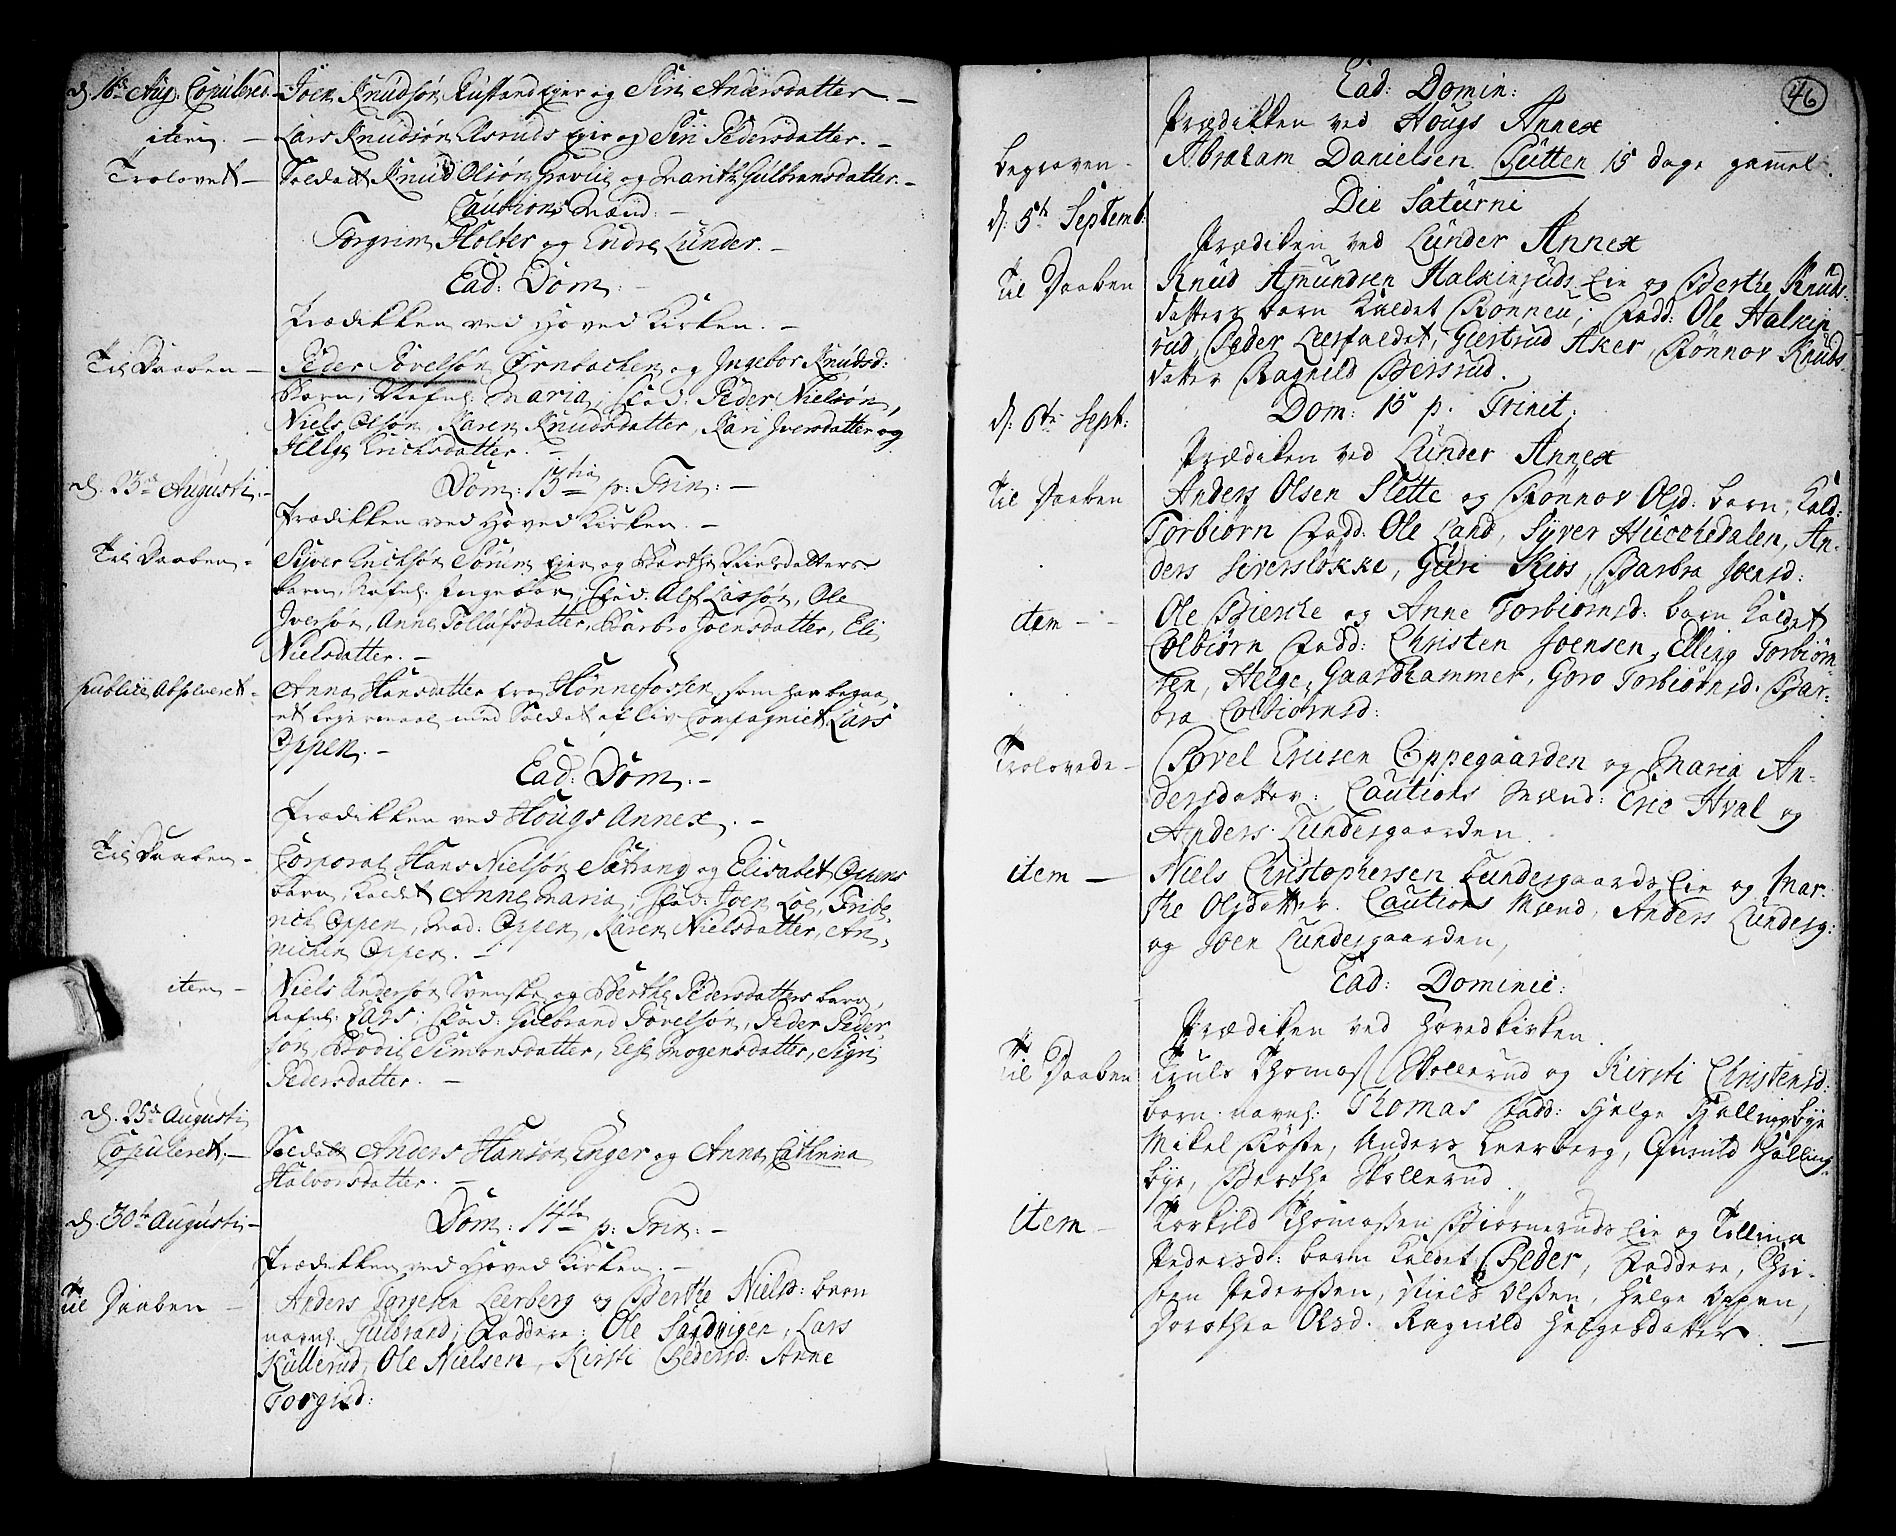 d. 16de Aug: Copulered. Joen Knudsøn Rustand Eger og Siri Andersdatter. —
item. — Lars Knudsøn Asruds Eie og Siri Pedersdatter. —
Trolovet — Soldatt Knud Olsøn Gravlie og Marith Gulbransdatter. —
Cautions Mænd: —
Torgrim Holter og Endre Lunder. —
Ead: Dom: —
Prædikken ved Hoved Kirken. —
Til Daaben — Peder Povelsøn Ørnbachen og Ingebor Knudsd:
Barn, Nafnl: Maria; Fad: Peder Nielsøn,
Niels Olsøn, Karen Knudsdatter, Kari Iversdatter og
Helge Erichsdatter. —
d. 23de Augusti: — Dom: 13tia p: Trin: —
Prædikken ved Hoved Kirken. —
Til Daaben — Syver Erichsøn Sørum Eie og Berthe Nielsdatters
barn, Nafnl: Ingebor; Fad: Alf Lassøn, Ole
Iversøn, Anne Tollufsdatter, Barbro Joensdatter, Eli
Nielsdatter. —
publice Absolveret — Anna Hansdatter fra Hønnefossen, som har begaa-
et Leyermaal med Soldat af liv Compagniet Lars
Oppen. —
Ead: Dom: —
Prædikken ved Hougs Annex. —
Til Daaben — Corporal Hans Nielsøn Sætrang og Elisabet Oppens
barn, kaldet Anne Maria; Fad: Joen Loe, Fride-
rich Oppen, Mad: Oppen, Karen Nielsdatter, An-
nichen Oppen. —
item — Niels Andersøn Svenske og Berthe Pedersdatters barn,
Nafnl: Lars; Fad: Gulbrand Povelsøn, Peder Peder-
søn, Bodil Simonsdatter, Else Mogensdatter, Sigri
Pedersdatter. —
d. 25de Augusti
Copuleret, — Soldatt Anders Hansøn Enger og Anna Cathrina
Halvorsdatter. —
d. 30te Augusti — Dom: 14de p: Trin: —
Prædikken ved Hoved Kirken. —
Til Daaben — Anders Torgersen Leerberg og Berthe Nielsd: barn
navnl. Gulbrand; Faddere: Ole Sandvigen, Lars
Kullerud, Ole Nielsen, Kirsti Pedersd: Anne
Torgisd:
46
Ead: Domin:
Prædikken ved Hougs Annex
begraven — Abraham Danielsen Hütten 15 dage gammel.
d: 5te Septemb: Die Saturni
Prædiken ved Lunder Annex
Til Daaben Knud Amundsen Halkinruds Eie og Berthe Knuds-
datters barn kaldet Rønneu; Fadd: Ole Halkin-
rud, Peder Leerfaldet, Giertrud Aker, Rønnov Knuds
datter Ragnild Bersrud.
d: 6te Sept: Dom: 15 p. Trinit:
Prædiken ved Lunder Annex
Til Daaben Anders Olsen Slette og Rønnov Olsd: barn, kald:
Torbiørn Fadd: Ole Land, Syver Hucchedalen, An-
ders Siversløkke, Guri Kios, Barbra Joensd:
item — Ole Bierche og Anne Torbiørnsd: barn kaldet
Colbiørn Fadd: Christen Joensen, Elling Torbiørn
sen, Helge Gaardhammer, Goro Torbiørnsd: Bar-
bra Colbiørnsd:
Trolovede — Povel Ericsen Oppegaarden og Maria An-
dersdatter: Cautions Mænd: Eric Hval og
Anders Lundesgaarden
item — Niels Christophersen Lundesgaards Eie og Mar-
the Olsdatter. Cautions Mænd, Anders Lundesg:
og Joen Lundesgaarden,
Ead: Dominic:
Prædiken ved Hovedkirken.
Til Daaben Truls Thomas Skollerud og Kirsti Christensd:
barn navnl: Thomas Fadd: Helge Hallingbye
Mikel Røste, Anders Leerberg, Gunild Halling-
bye, Berthe Skollerud
item — Torkild Thomassen Biørneruds Eie og Tolline
Pedersd: barn kaldet Peder, Faddere, Chri-
sten Pederssen, Niels Olssen, Helge Oppen,
Dorothea Olsd. Ragnild Helgesdatter. —